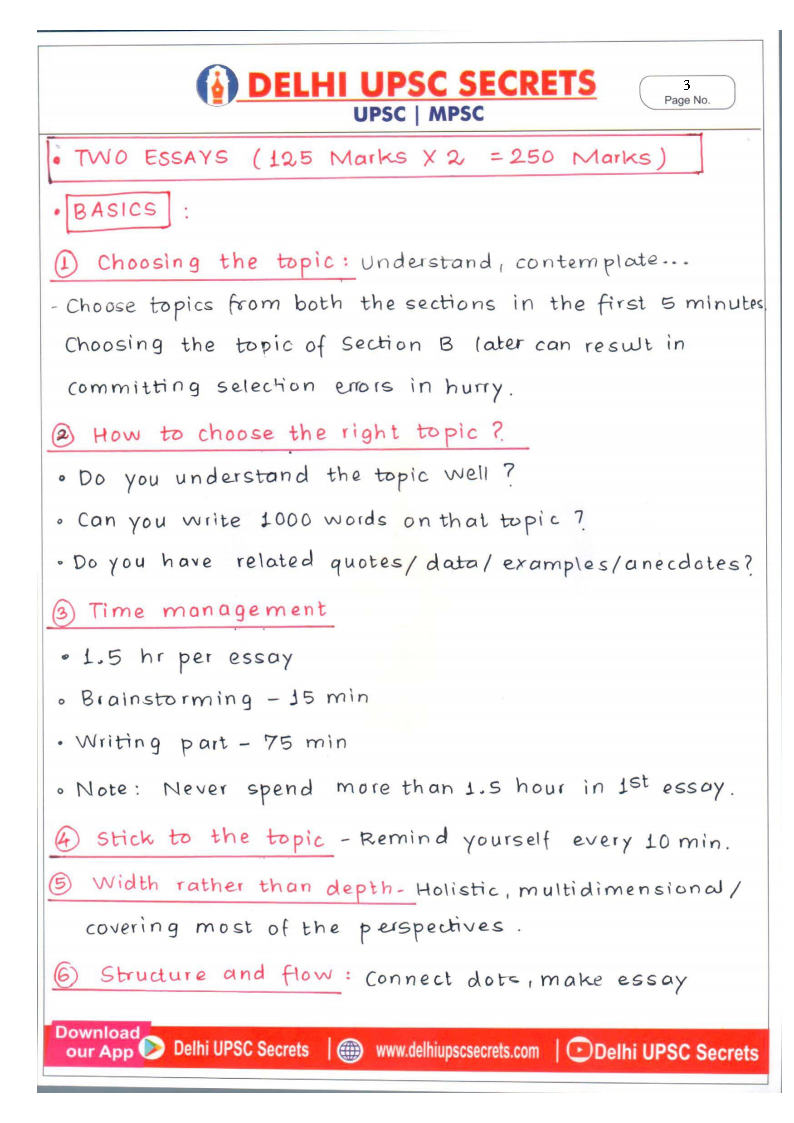 DELHI UPSC SECRETS
UPSC | MPSC
3
Page No.
• TWO ESSAYS (125 Marks X 2 = 250 Marks)
• BASICS :
① Choosing the topic : Understand, contemplate...
- Choose topics from both the sections in the first 5 minutes.
Choosing the topic of Section B later can result in
committing selection errors in hurry.
② How to choose the right topic ?
• Do you understand the topic well ?
• Can you write 1000 words on that topic ?
• Do you have related quotes/ data/ examples/anecdotes?
③ Time management
• 1.5 hr per essay
• Brainstorming - 15 min
• Writing part - 75 min
• Note : Never spend more than 1.5 hour in 1st essay.
④ Stick to the topic - Remind yourself every 10 min.
⑤ Width rather than depth - Holistic, multidimensional /
covering most of the perspectives.
⑥ Structure and flow : Connect dots, make essay
Download
our App
Delhi UPSC Secrets | www.delhiupscsecrets.com | Delhi UPSC Secrets